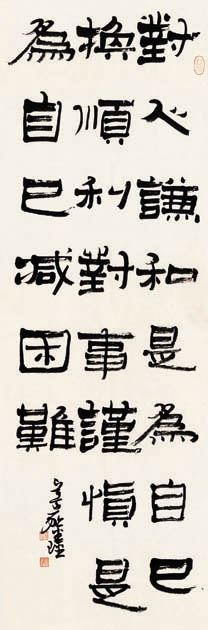 對人謙和是為自己
換順利對事謹慎是
為自己減困難